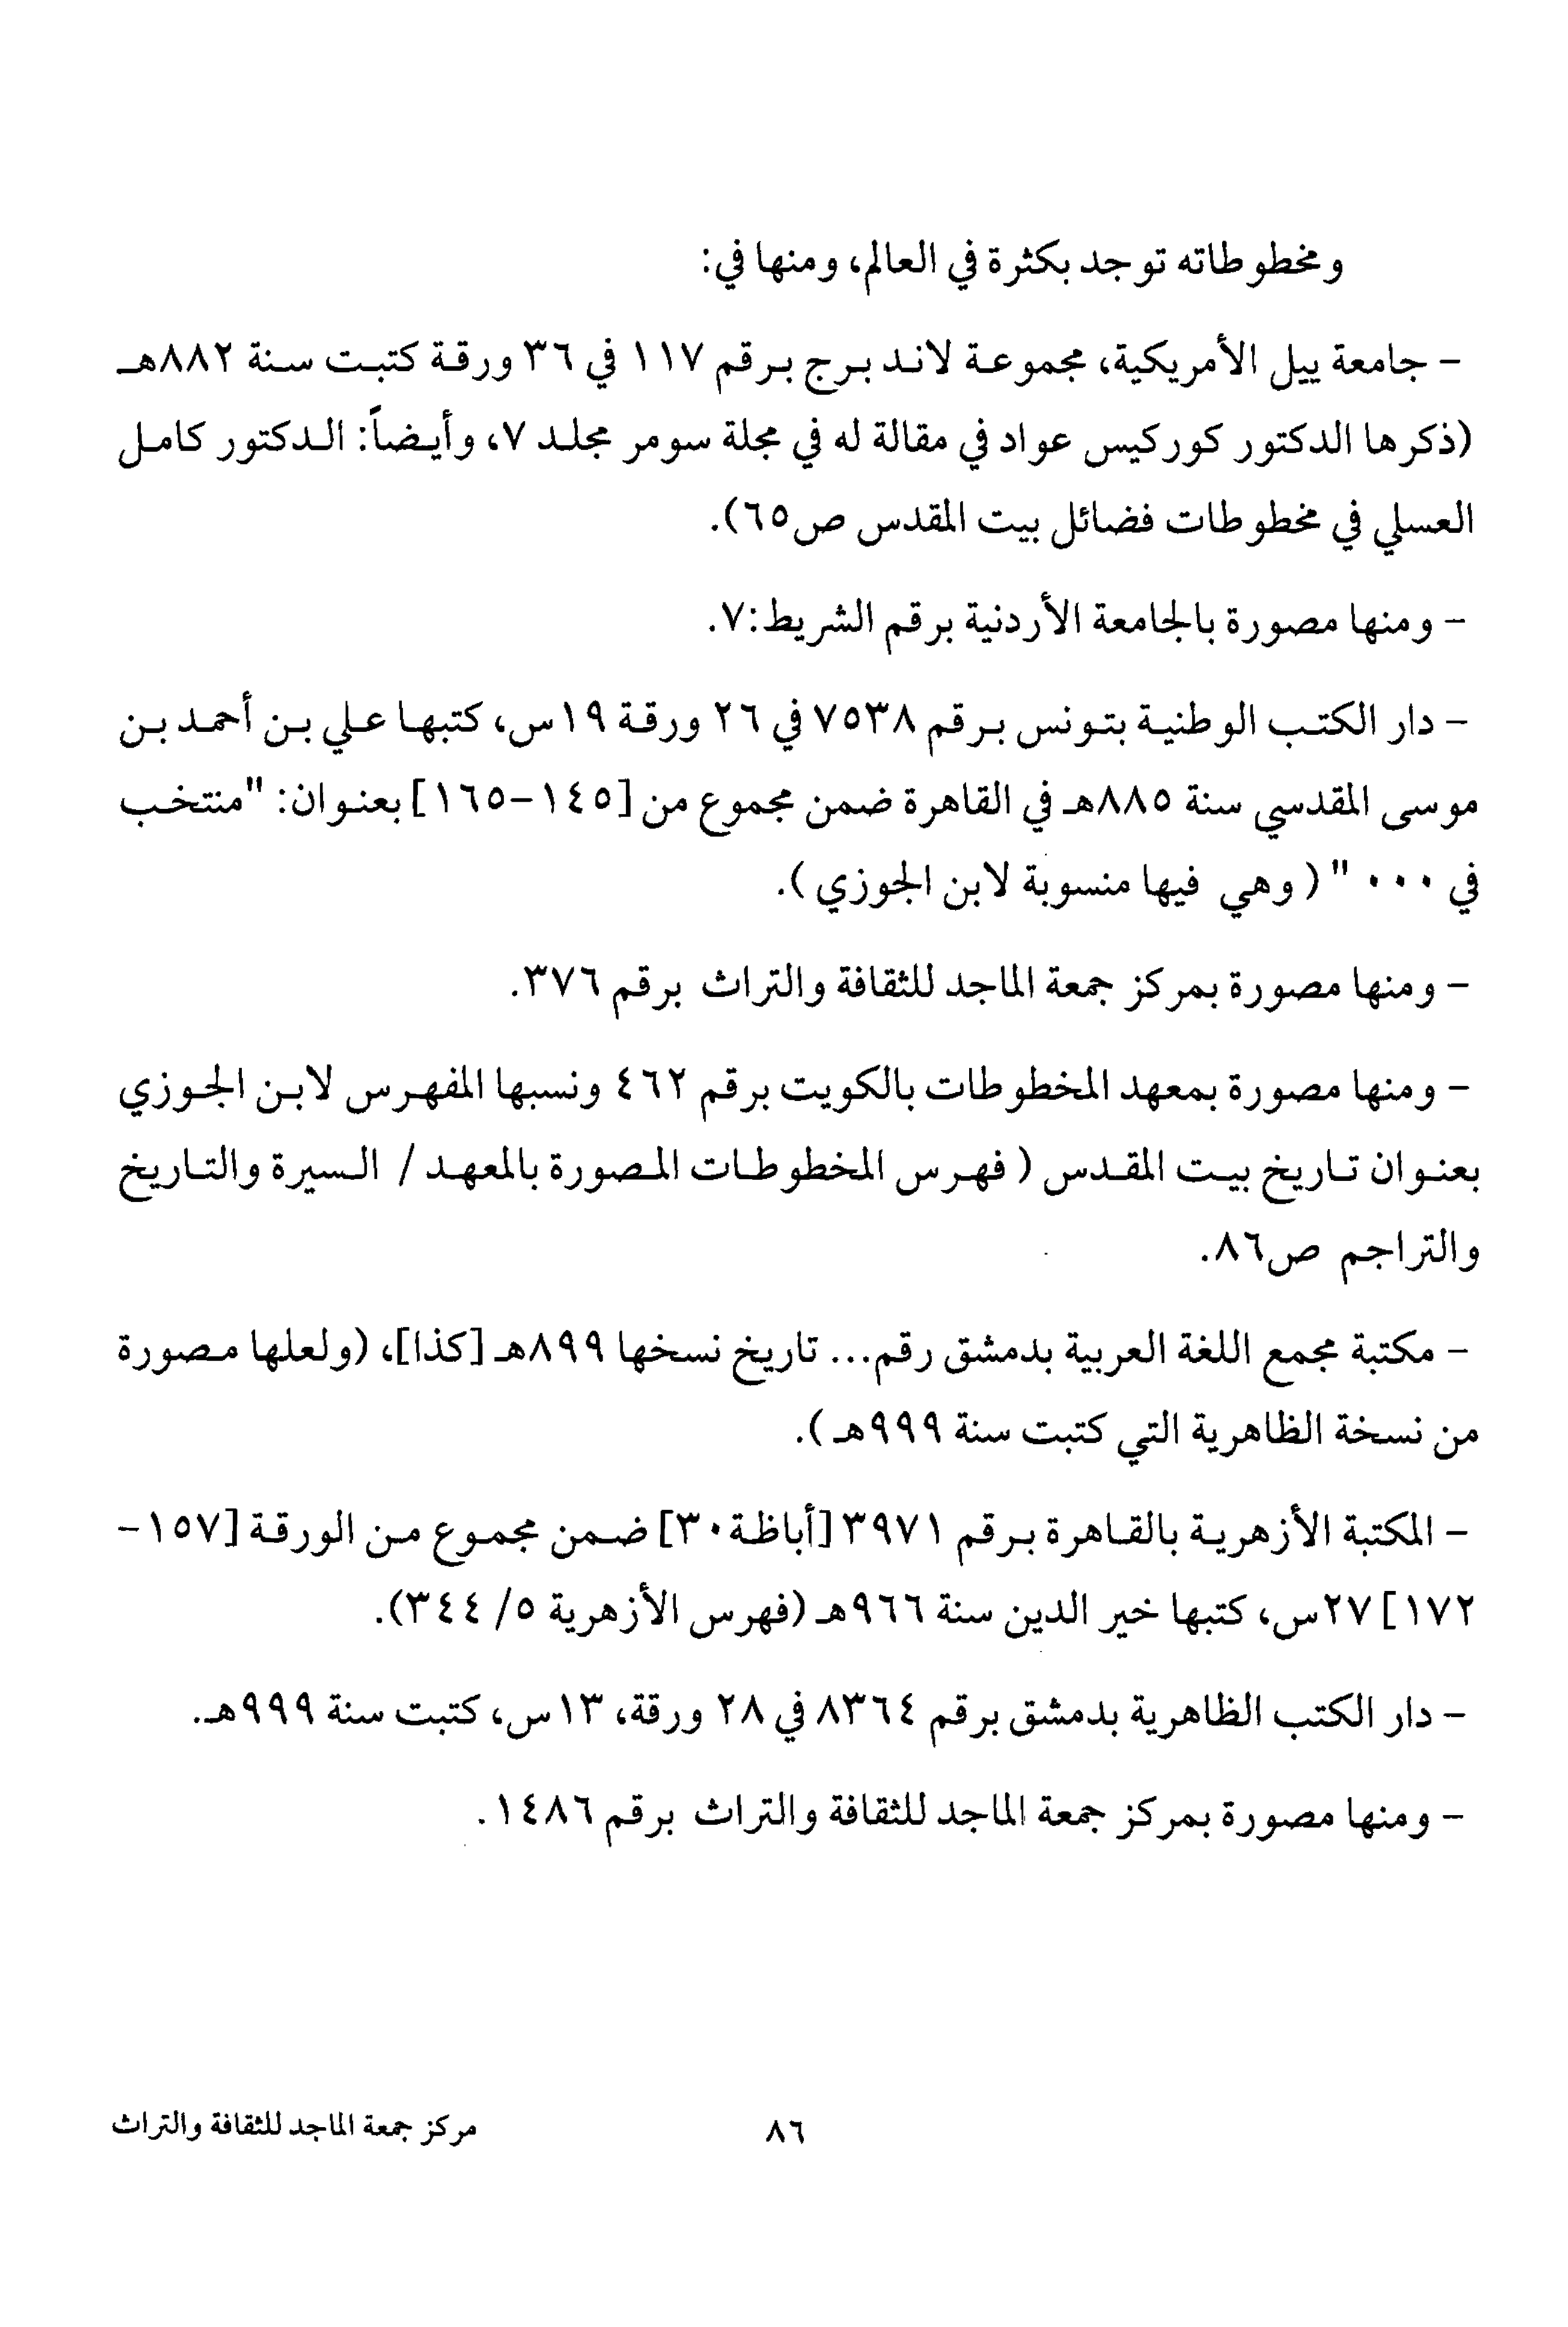 ومخطوطاته توجد بكثرة في العالم، ومنها في:
- جامعة ييل الأمريكية، مجموعة لاند برج برقم ١١٧ في ٣٦ ورقة كتبت سنة ٨٨٢هـ
(ذكرها الدكتور كوركيس عواد في مقالة له في مجلة سومر مجلد ٧، وأيضاً: الدكتور كامل
العسلي في مخطوطات فضائل بيت المقدس ص٦٥).
- ومنها مصورة بالجامعة الأردنية برقم الشريط:٧.
- دار الكتب الوطنية بتونس برقم ٧٥٣٨ في ٢٦ ورقة ١٩س، كتبها علي بن أحمد بن
موسى المقدسي سنة ٨٨٥هـ في القاهرة ضمن مجموع من [١٤٥-١٦٥] بعنوان: "منتخب
في ٠٠٠ " ( وهي فيها منسوبة لابن الجوزي ).
- ومنها مصورة بمركز جمعة الماجد للثقافة والتراث برقم ٣٧٦.
- ومنها مصورة بمعهد المخطوطات بالكويت برقم ٤٦٢ ونسبها المفهرس لابن الجوزي
بعنوان تاريخ بيت المقدس ( فهرس المخطوطات المصورة بالمعهد / السيرة والتاريخ
والتراجم ص٨٦.
- مكتبة مجمع اللغة العربية بدمشق رقم... تاريخ نسخها ٨٩٩هـ [كذا]، (ولعلها مصورة
من نسخة الظاهرية التي كتبت سنة ٩٩٩هـ ).
- المكتبة الأزهرية بالقاهرة برقم ٣٩٧١ [أباظة٣٠] ضمن مجموع من الورقة [١٥٧-
١٧٢] ٢٧س، كتبها خير الدين سنة ٩٦٦هـ (فهرس الأزهرية ٥/ ٣٤٤).
- دار الكتب الظاهرية بدمشق برقم ٨٣٦٤ في ٢٨ ورقة، ١٣س، كتبت سنة ٩٩٩هـ.
- ومنها مصورة بمركز جمعة الماجد للثقافة والتراث برقم ١٤٨٦.
٨٦
مركز جمعة الماجد للثقافة والتراث